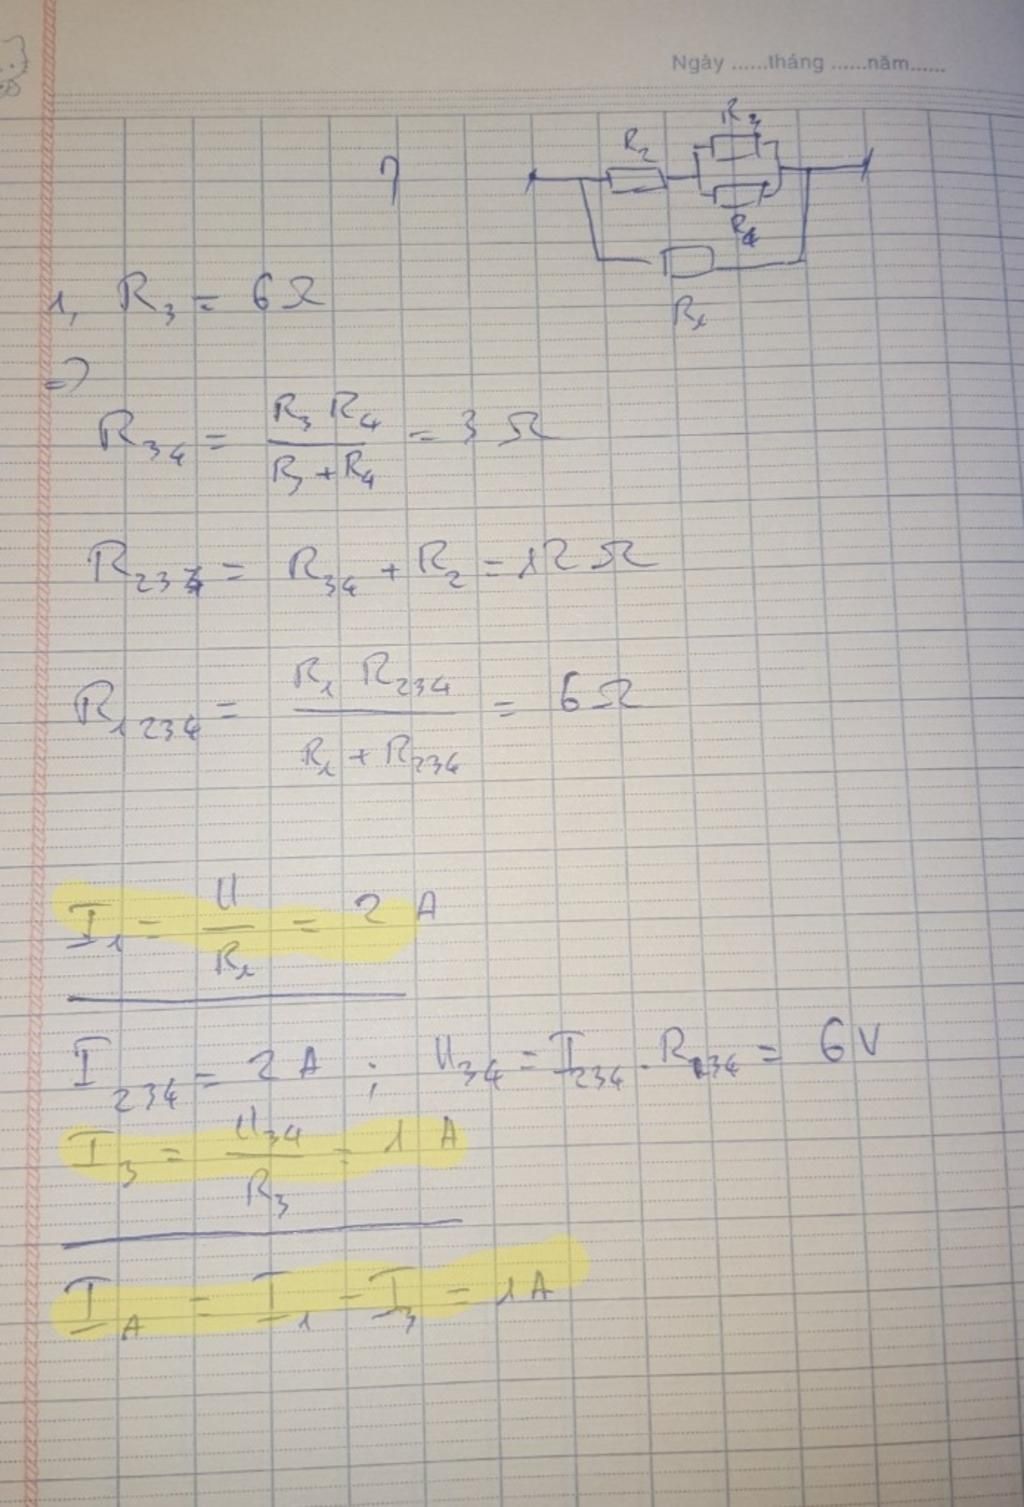 Ngày ......tháng ......năm......
R₃
R₂
R₄
R₁
1, R₃ = 6Ω
=>
R₃₄ = R₃ R₄ / R₃ + R₄ = 3 Ω
R₂₃₄ = R₃₄ + R₂ = 12 Ω
R₁₂₃₄ = R₁ R₂₃₄ / R₁ + R₂₃₄ = 6Ω
I₁ = U / R₁ = 2 A
I₂₃₄ = 2 A ; U₃₄ = I₂₃₄ . R₂₃₄ = 6 V
I₃ = U₃₄ / R₃ = 1 A
I_A = I₁ - I₃ = 1 A